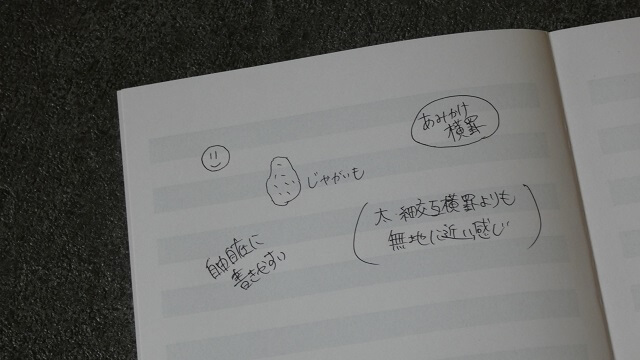 あみかけ
横罫
じゃがいも
太・細交互横罫よりも
無地に近い感じ
自由自在に
書きやすい